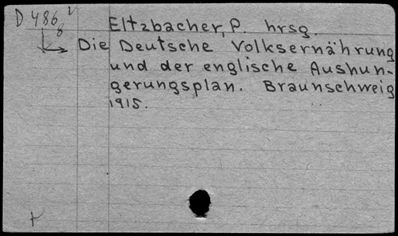 D 486 2 Eltzbacher, P. hrsg.
8 Die Deutsche Volksernährung
und der englische Aushun-
gerungsplan. Braunschweig
1915.